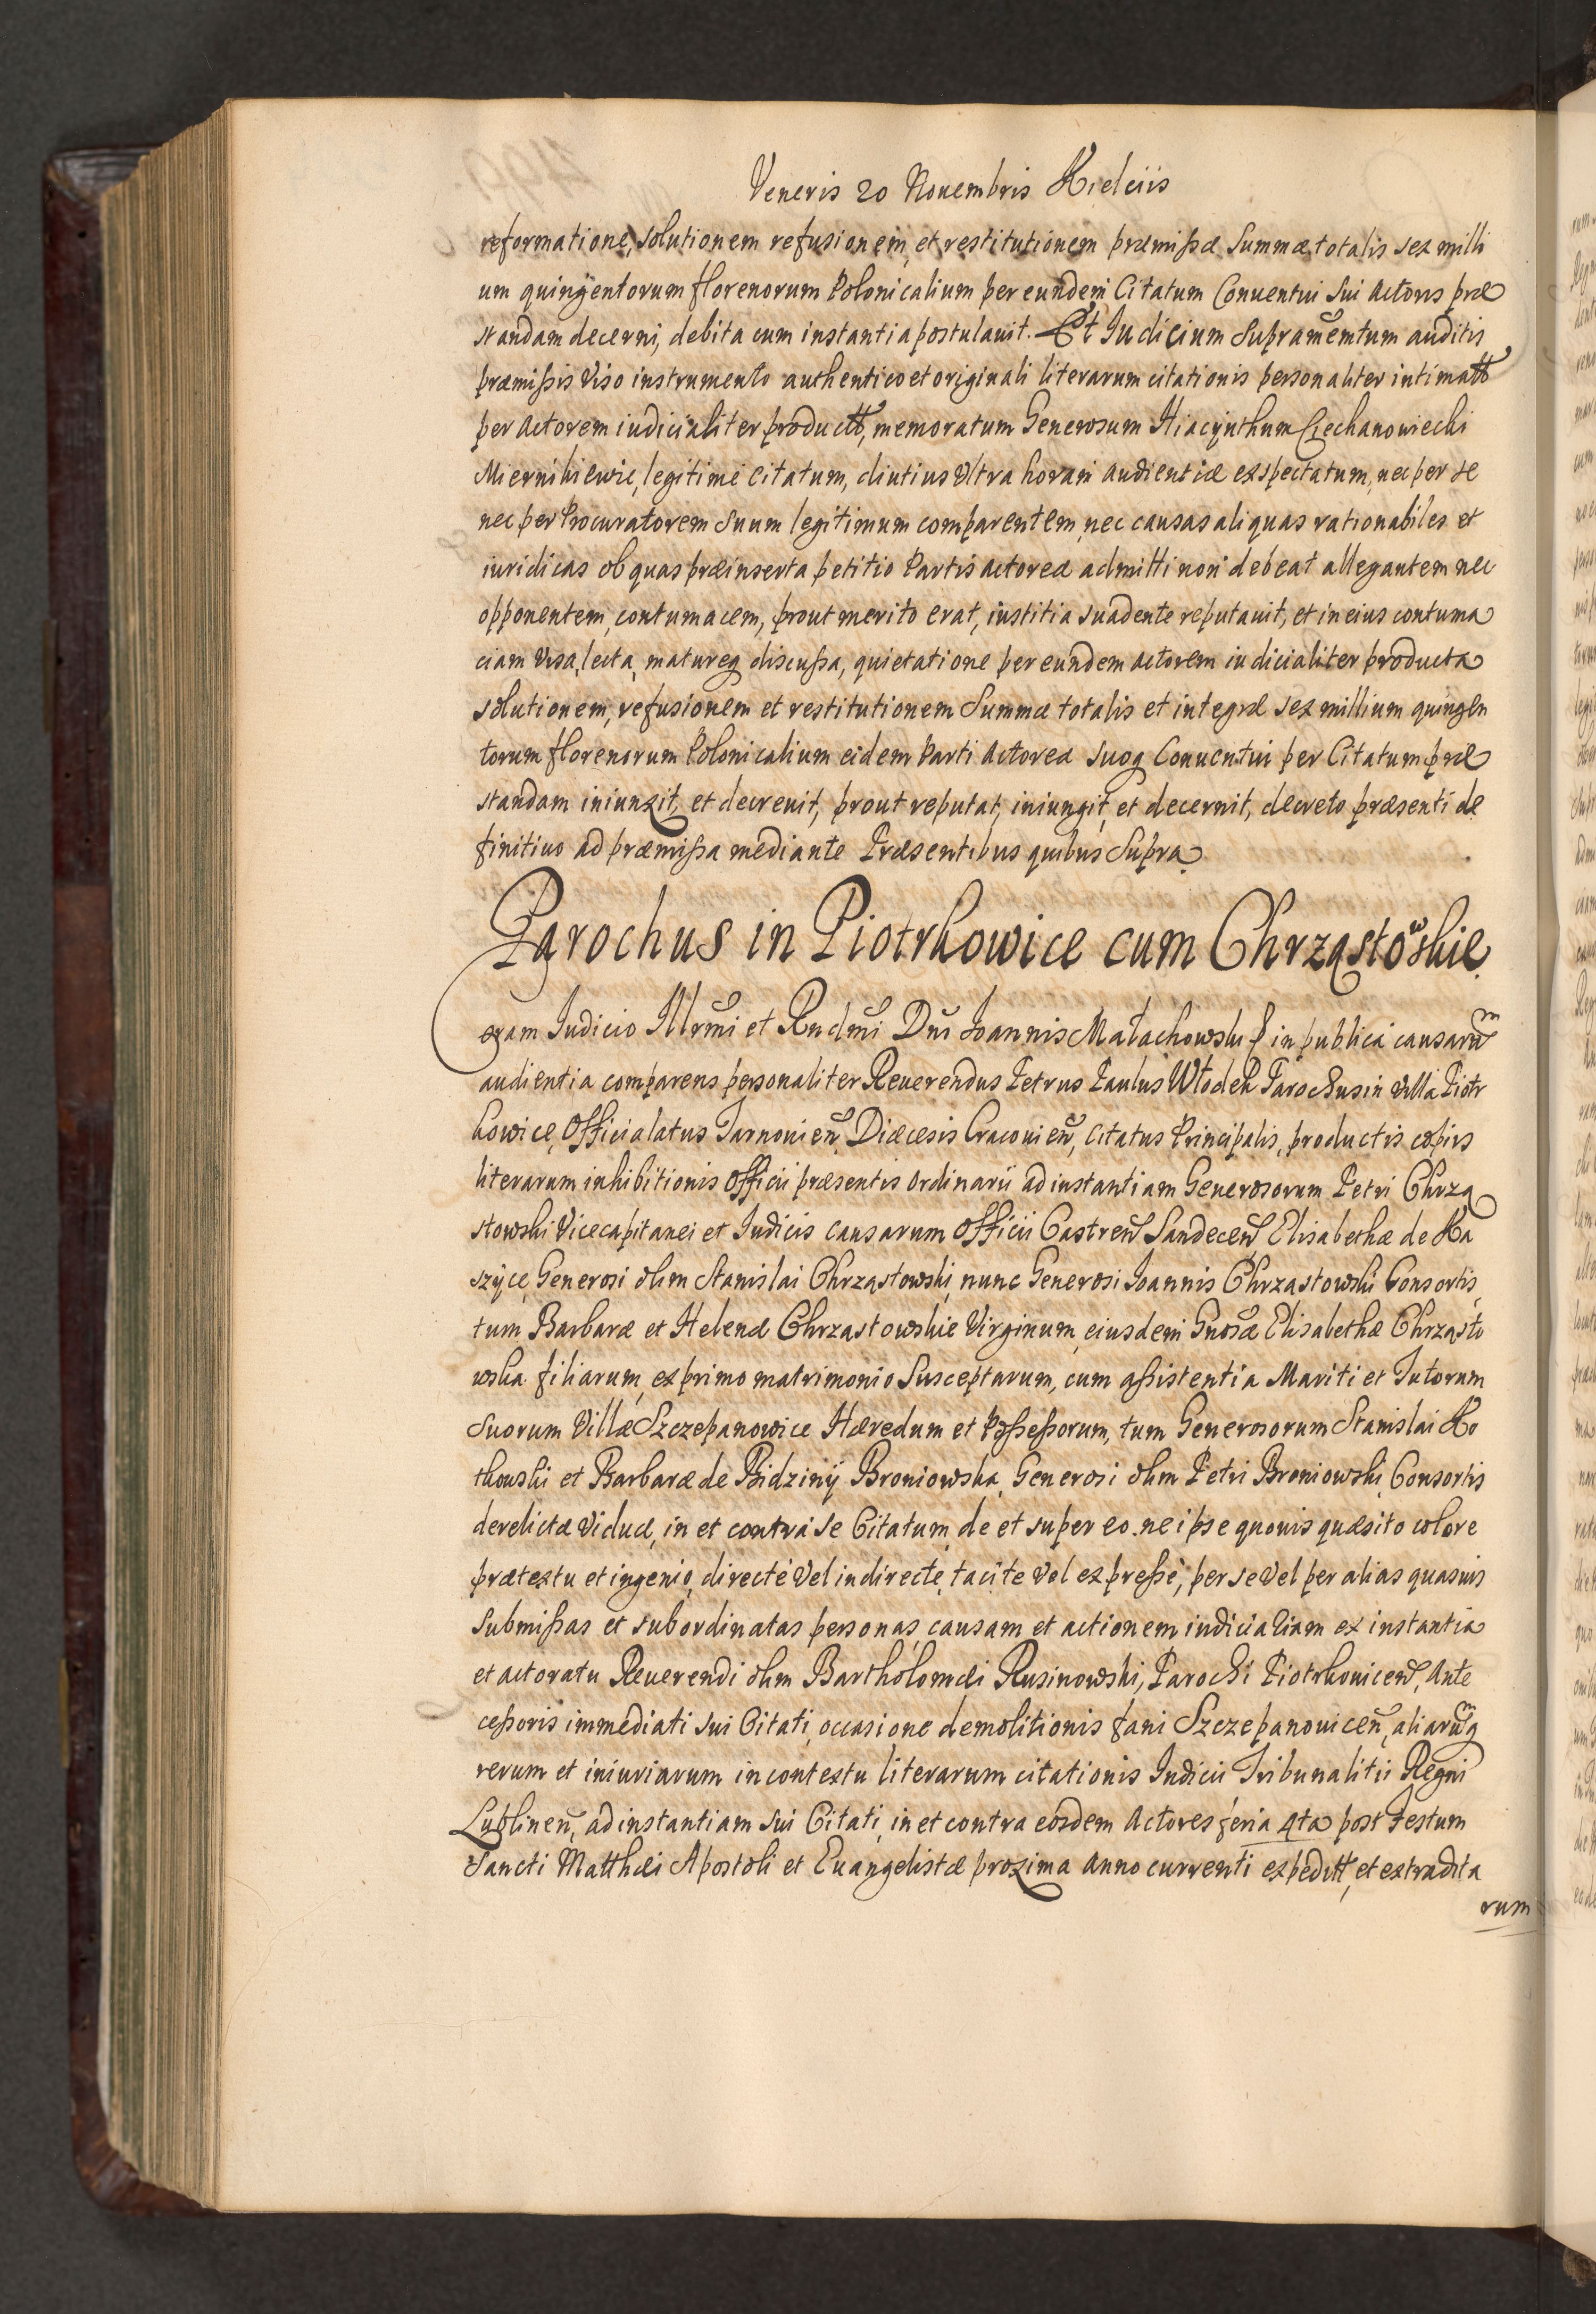 Veneris 20 Nouembris Kielciis
reformatione, solutionem refusionem, et restitutionem præmissæ Summæ totalis sex milli
um quingentorum florenorum Polonicalium per eundem Citatum Conuentui sui Actoris præ
standam decerni, debita cum instantia postulauit. Et Iudicium Supramemtum auditis
præmissis viso instrumento authentico et originali literarum citationis personaliter intimatt
per Actorem iudicialiter productt, memoratum Generosum Hiacynthum Ciechanowiecki
Miernikiewic, legitime citatum, diutius vltra horam audientiæ exspectatum, nec per se
nec per Procuratorem suum legitimum comparentem, nec causas aliquas rationabiles et
iuridicas ob quas præinserta petitio Partis actoreæ admitti non debeat allegantem nec
opponentem, contumacem, prout merito erat, iustitia suadente reputauit, et in eius contuma
ciam visa, lecta, matureq discussa, quietatione per eundem actorem iudicialiter producta
solutionem, refusionem et restitutionem Summæ totalis et integræ sex millium quingen
torum florenorum Polonicalium eidem Parti Actoreæ suoq Conuentui per Citatum præ
standam iniunxit, et decreuit, prout reputat, iniungit, et decernit, decreto præsenti de
finitiuo ad præmissa mediante Præsentibus quibus Supra
Parochus in Piotrkowice cum Chrząstowskie
Coram Iudicio Illrmi et Rndmi Dni Ioannis Małachowski in publica causarum
audientia comparens personaliter Reuerendus Petrus Paulus Włodek Parochus in villa Piotr
kowice, Officialatus Tarnouien, Diæcesis Cracouien, citatus Principalis, productis copiis
literarum inhibitionis Officii præsentis ordinarii ad instantiam Generosorum Petri Chrzą
stowski Vicecapitanei et Iudicis causarum Officii Castren Sandecen, Elisabethæ de Ka
szyce, Generosi olim Stanislai Chrząstowski, nunc Generosi Ioannis Chrząstowski Consortis,
tum Barbaræ et Helenæ Chrzastowskie Virginum, eiusdem Gnosæ Elisabethæ Chrzasto
wska filiarum, ex primo matrimonio susceptarum, cum assistentia Mariti et Tutorum
suorum Villæ Szczepanowice Hæredum et Possessorum, tum Generosorum Stanislai Ko
tkowski et Barbaræ de Bidziny Broniowska, Generosi olim Petri Broniowski Consortis
derelictæ Viduæ, in et contra se Citatum, de et super eo. ne ipse quouis quæsito colore
prætextu et ingenio, directe vel indirecte, tacite vel expresse, per se vel per alias quasuis
submissas et subordinatas personas, causam et actionem iudicialiam ex instantia
et actoratu Reuerendi olim Bartholomæi Rusinowski, Parochi Piotrkouicen, Ante
cessoris immediati sui Citati, occasione demolitionis fani Szczepanouicen, aliarumq
rerum et iniuriarum in contextu literarum citationis Iudicii Tribunalitii Regni
Lublinen, ad instantiam sui Citati, in et contra eosdem Actores feria 4ta post Festum
Sancti Matthæi Apostoli et Euangelistæ proxima anno currenti expeditt, et extradita
rum